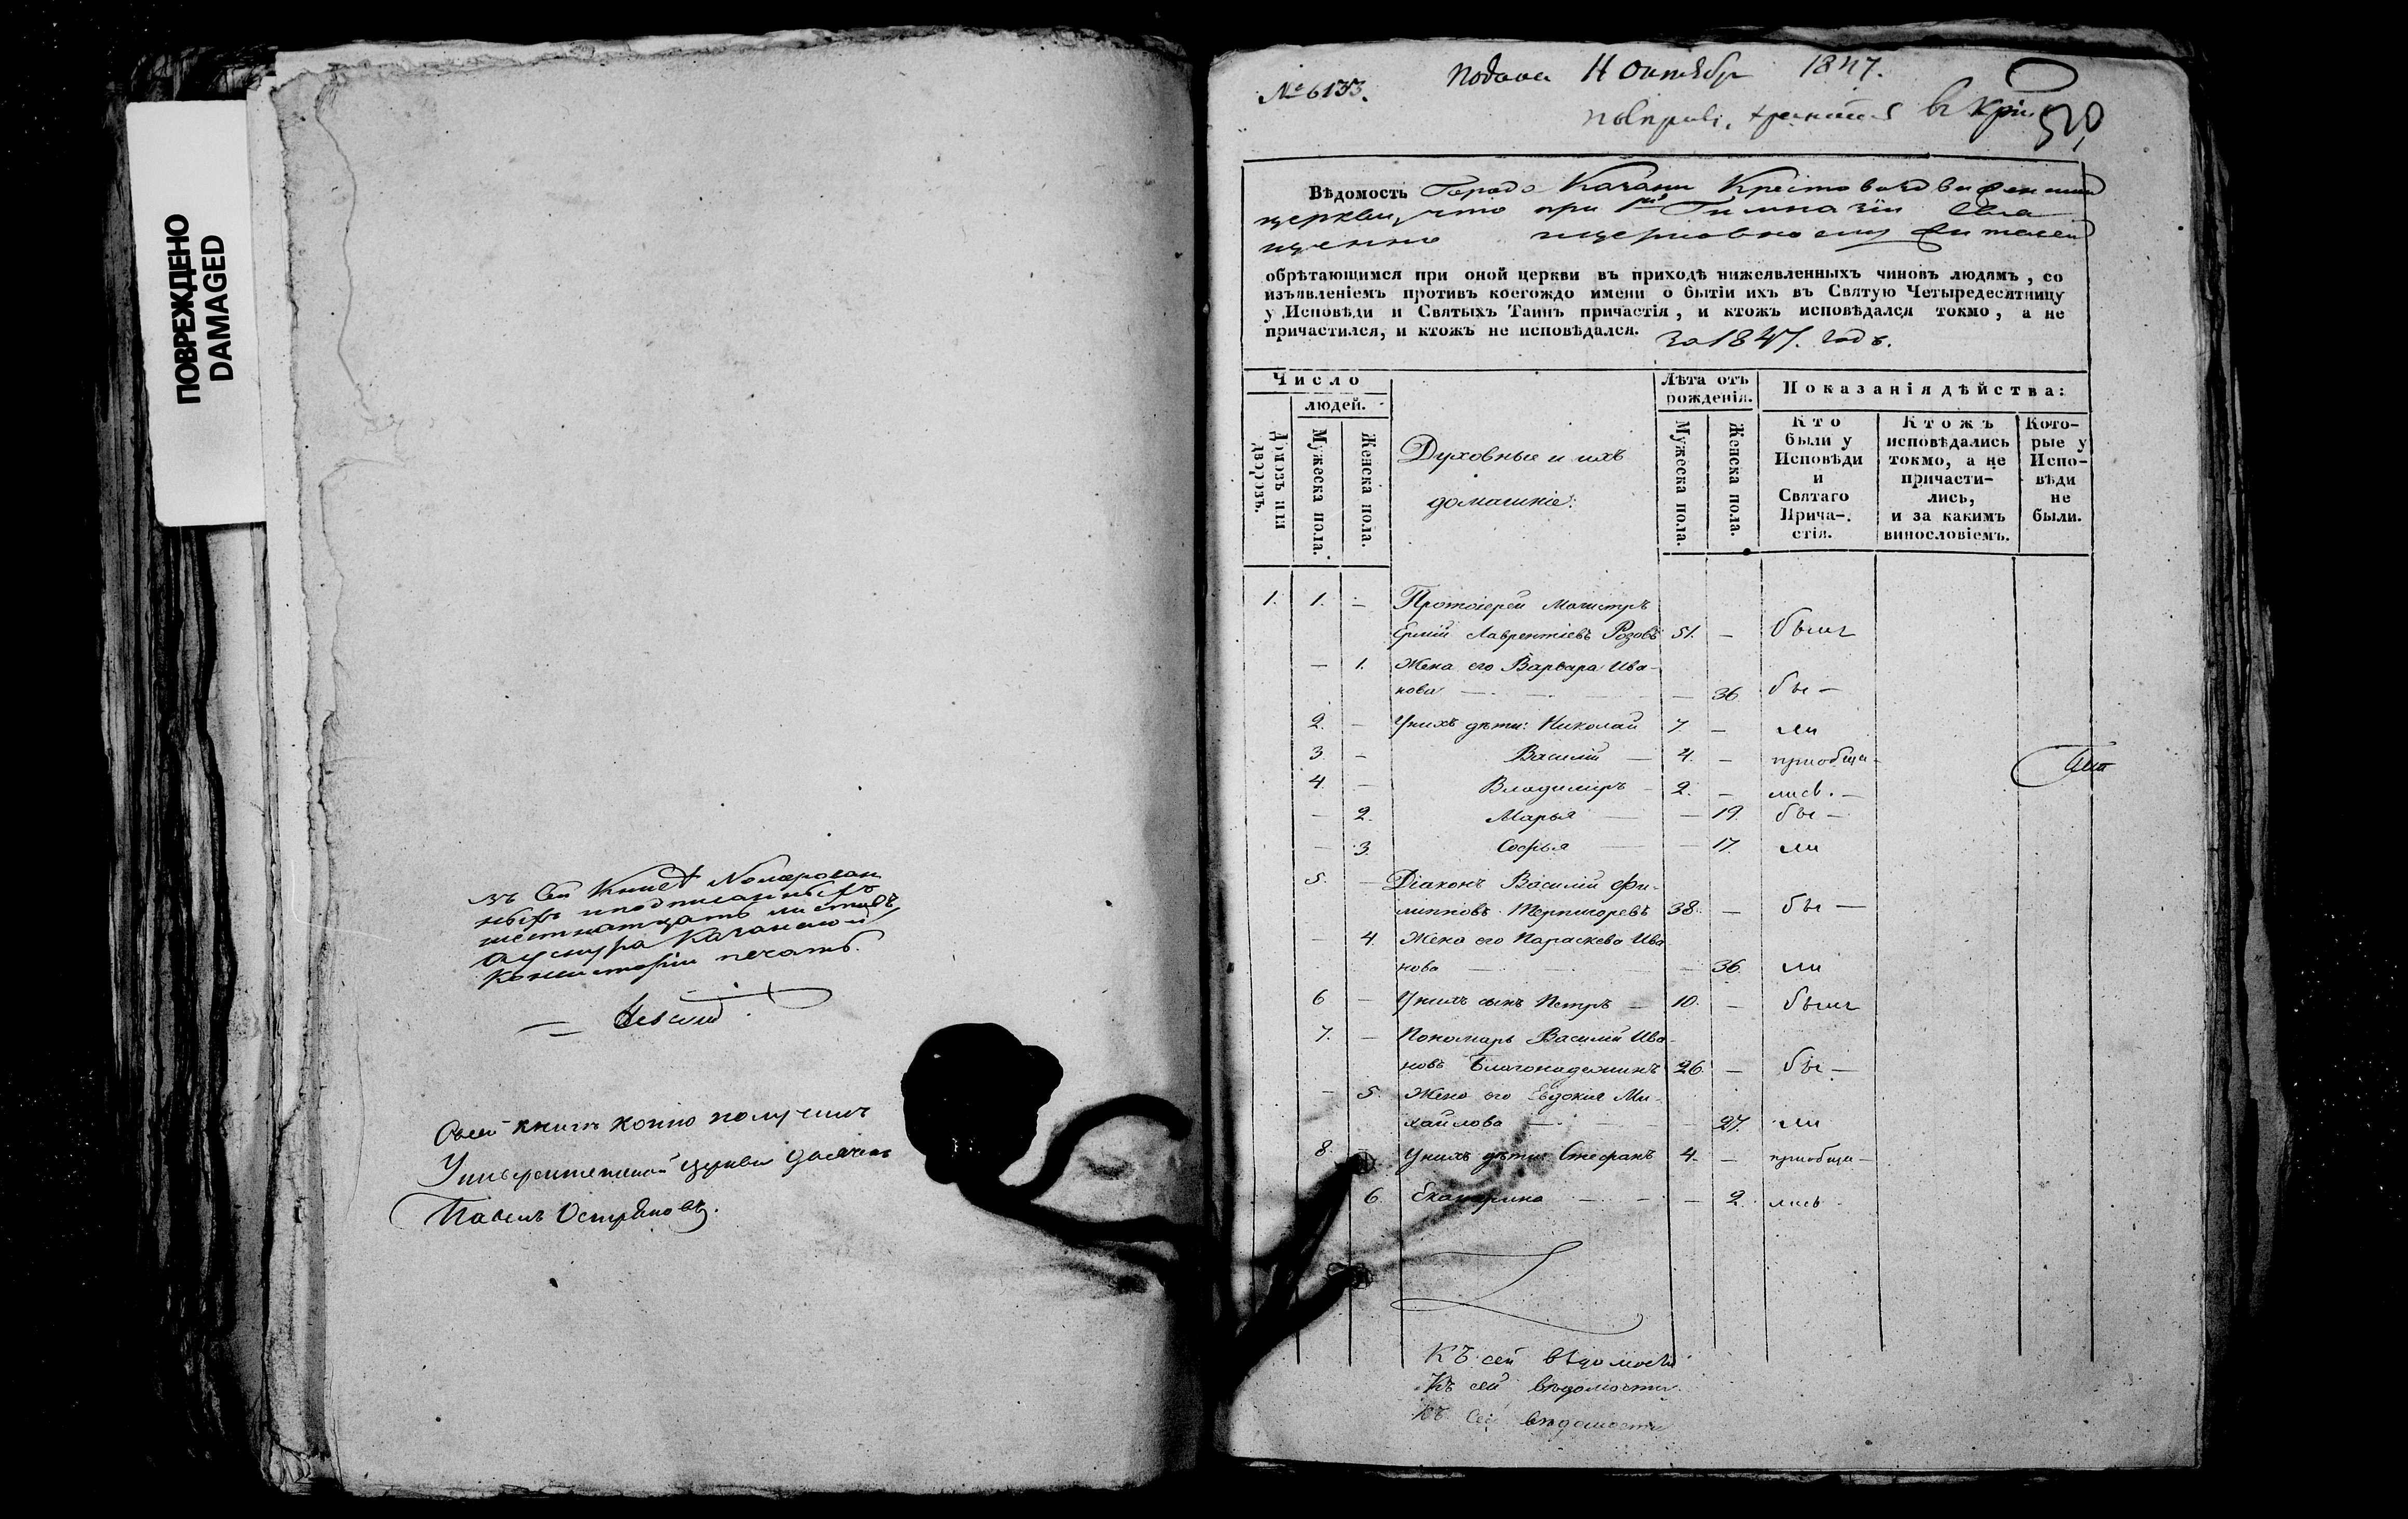 ПОВРЕЖДЕНО
DAMAGED
въ сей Книгѣ Номерован
ныхъ и подписанныхъ
шестнатцать листовъ
Казанской
Консисторіи печать.
Съ сей книги копію получилъ
Университетской церкви діаконъ
Павелъ Остряковъ.
№ 6133.
Подана 11 Октябр 1847.
въ
520
Вѣдомость Города Казани Крестовоздвиженской
церкви, что при 1й Гимназіи Свя
щенно церковно
обрѣтающимся при оной церкви въ приходѣ нижеявленныхъ чиновъ людямъ, со
изъявленіемъ противъ коегождо имени о бытіи ихъ въ Святую Четыредесятницу
у Исповѣди и Святыхъ Таинъ причастія, и ктожъ исповѣдался токмо, а не
причастился, и ктожъ не исповѣдался. за 1847. годъ.
Число
людей.
Домовъ или дворовъ.
Мужеска пола.
Женска пола.
Духовные и ихъ
домашніе:
Лѣта отъ
рожденія.
Мужеска пола.
Женска пола.
Показанія дѣйства:
Кто
были у
Исповѣди
и
Святаго
Прича-
стія.
Ктожъ
исповѣдались
токмо, а не
причасти-
лись,
и за какимъ
винословіемъ.
Кото-
рые у
Испо-
вѣди
не
были.
1. 1. – Протоіерей Магистръ
Ермій Лаврентіевъ Розовъ 51. – былъ
– 1. Жена его Варвара Ива-
нова – 36 бы –
2. – У нихъ дѣти: Николай 7 – ли
3 – Василій – 4. – приобща-
4. – Владиміръ – 2. – лись. –
– 2. Марья – – 19. бы –
– 3. Софья – – 17. ли
5. – Діаконъ Василій Фи-
липповъ Терпигоревъ 38. – бы –
– 4. Жена его Параскева Ива
нова – – 36. ли
6 – У нихъ сынъ Петръ – 10. – былъ
7. – Пономарь Василій Ива-
новъ Благонадеждинъ 26. – бы –
– 5. Жена его Евдокія Ми-
хайлова – – 27. ли
8. У нихъ дѣти: Стефанъ 4. – приобща –
6. Екатерина – – 2. лись –
Къ сей вѣдомости
Къ сей вѣдомости
Къ сей вѣдомости